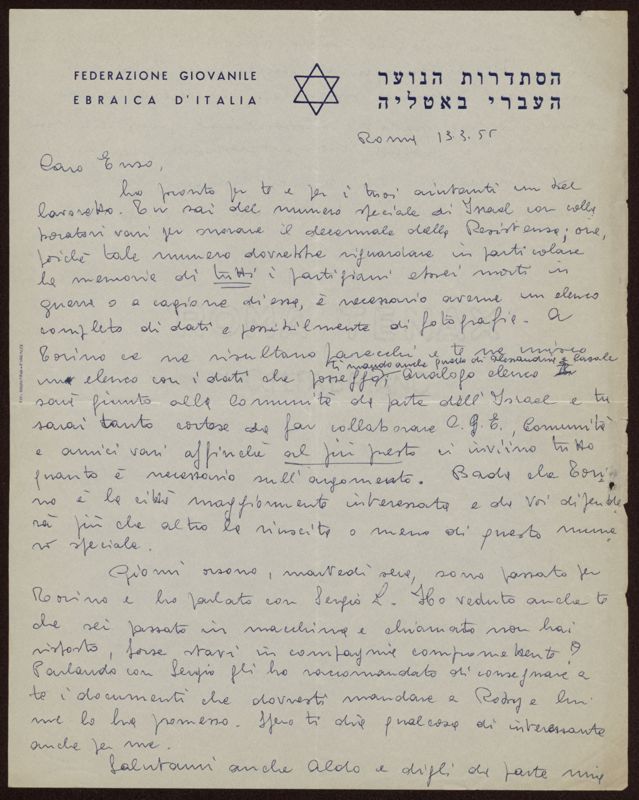 FEDERAZIONE GIOVANILE
EBRAICA D'ITALIA
הסתדרות הנוער
העברי באטליה
Roma 13.3.55
Caro Enzo,
ho pronto per te e per i tuoi aiutanti un bel
lavoretto. Tu sai del numero speciale di Israel con colla
boratori vari per onorare il decennale della Resistenza; ora,
poiché tale numero dovrebbe riguardare in particolare
la memoria di tutti i partigiani ebrei morti in
guerra o a cagione di essa, è necessario averne un elenco
completo di dati e possibilmente di fotografie. A
Torino ce ne risultano parecchi e te ne unisco
ti mando anche quello di Alessandria e Casale
un elenco con i dati che posseggo, analogo elenco
sarà giunto alla Comunità da parte dell'Israel e tu
sarai tanto cortese da far collaborare C.G.E., Comunità
e amici vari affinché al più presto ci inviino tutto
quanto è necessario sull'argomento. Bada che Tori-
no è la città maggiormente interessata e da voi dipende
rà più che altro la riuscita o meno di questo nume
ro speciale.
Giorni orsono, martedì sera, sono passato per
Torino e ho parlato con Sergio L. Ho veduto anche te
che sei passato in macchina e chiamato non hai
risposto, forse stavi in compagnia compromettente?
Parlando con Sergio gli ho raccomandato di consegnare a
te i documenti che dovresti mandare a Roby e lui
me lo ha promesso. Spero ti dia qualcosa di interessante
anche per me.
Salutami anche Aldo e digli da parte mia